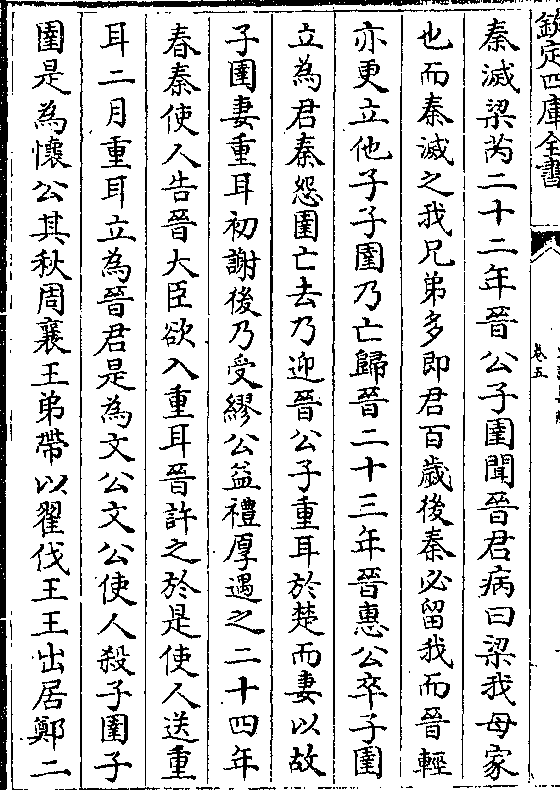 欽定四庫全書
卷五
秦滅梁芮二十二年晉公子圉聞晉君病曰梁我母家
也而秦滅之我兄弟多即君百歲後秦必留我而晉輕
亦更立他子子圉乃亡歸晉二十三年晉惠公卒子圉
立為君秦怨圉亡去乃迎晉公子重耳於楚而妻以故
子圉妻重耳初謝後乃受繆公益禮厚遇之二十四年
春秦使人告晉大臣欲入重耳晉許之於是使人送重
耳二月重耳立為晉君是為文公文公使人殺子圉子
圉是為懷公其秋周襄王弟帶以翟伐王王出居鄭二